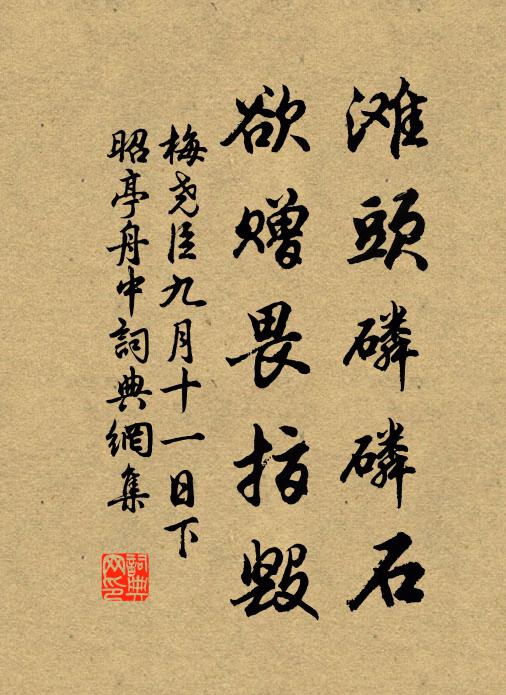 滩頭磷磷石
欲赠畏指毁
梅尧臣九月十一日下
昭亭舟中詞典網集
詞典网印